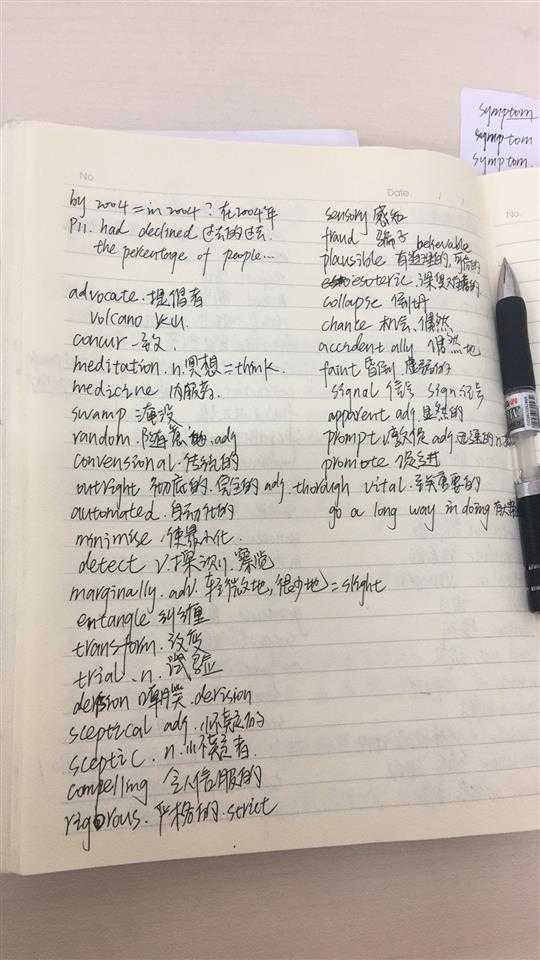 symptom
symptom
symptom
No.
Date
No.
by 2004 = in 2004 ? 在2004年
P11. had declined 过去的过去
the percentage of people...
advocate. 提倡者
volcano 火山
concur 一致
meditation. n. 冥想 = think.
medicine 内服药.
swamp 淹没
random. 随意 adj
convensional. 传统的
outright 彻底的. 完全的 adj. thorough
automated. 自动化的
minimise. 使最小化.
detect v. 探测. 察觉
marginally. adv. 轻微地, 很少地 = slight
entangle 纠缠
transform. 改变
trial. n. 试验
嘲笑. derision
sceptical adj. 怀疑的
sceptic. n. 怀疑者.
compelling 令人信服的
rigorous. 严格的. strict
sensory 感知
fraud 骗子 believable
plausible 有道理的, 可信的
esoteric. 深奥难懂的
collapse 倒坍
chance 机会. 偶然
accident ally 偶然地
faint 昏倒. 虚弱的
signal 信号 sign 记号
apparent adj 显然的
prompt v. 敦促 adj 迅速的 n.
promote 促进
vital. 至关重要的
go a long way in doing